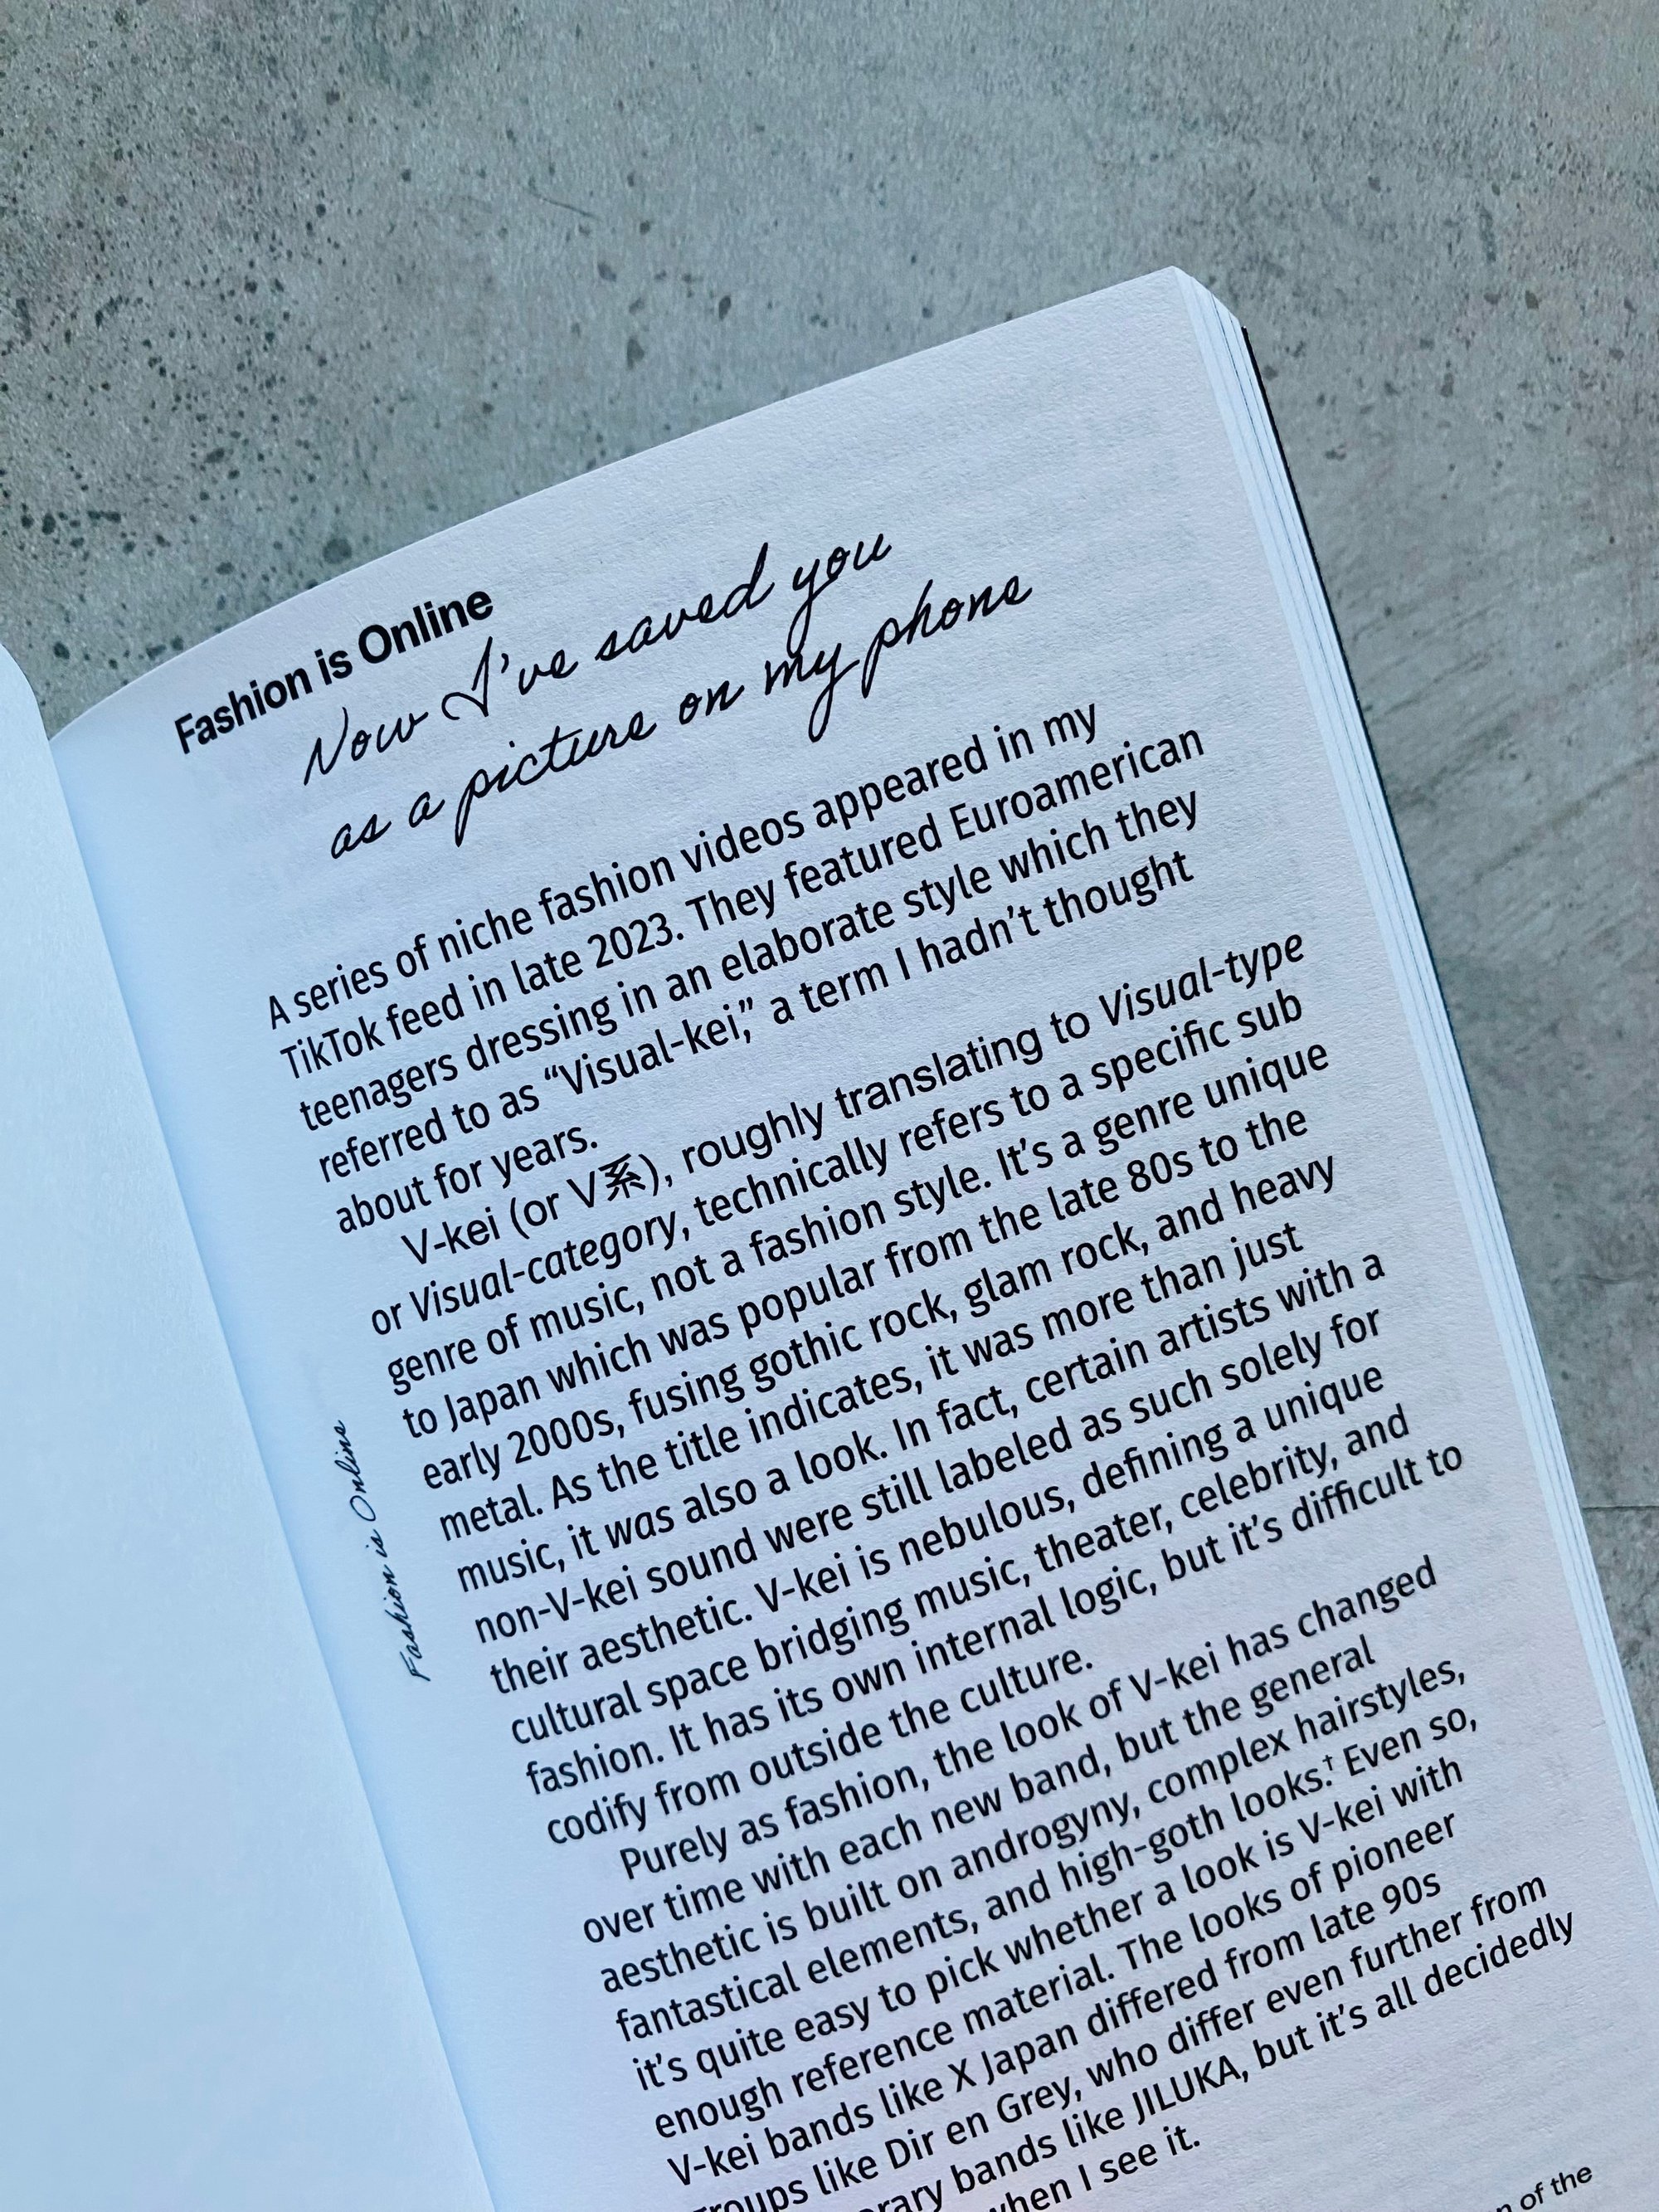 Fashion is Online
Now I've saved you
as a picture on my phone
A series of niche fashion videos appeared in my
TikTok feed in late 2023. They featured Euroamerican
teenagers dressing in an elaborate style which they
referred to as “Visual-kei,” a term I hadn’t thought
about for years.
V-kei (or V系), roughly translating to Visual-type
or Visual-category, technically refers to a specific sub
genre of music, not a fashion style. It’s a genre unique
to Japan which was popular from the late 80s to the
early 2000s, fusing gothic rock, glam rock, and heavy
metal. As the title indicates, it was more than just
music, it was also a look. In fact, certain artists with a
non-V-kei sound were still labeled as such solely for
their aesthetic. V-kei is nebulous, defining a unique
cultural space bridging music, theater, celebrity, and
fashion. It has its own internal logic, but it’s difficult to
codify from outside the culture.
Purely as fashion, the look of V-kei has changed
over time with each new band, but the general
aesthetic is built on androgyny, complex hairstyles,
fantastical elements, and high-goth looks.† Even so,
it’s quite easy to pick whether a look is V-kei with
enough reference material. The looks of pioneer
V-kei bands like X Japan differed from late 90s
like Dir en Grey, who differ even further from
bands like JILUKA, but it’s all decidedly
when I see it.
of the
Fashion is Online